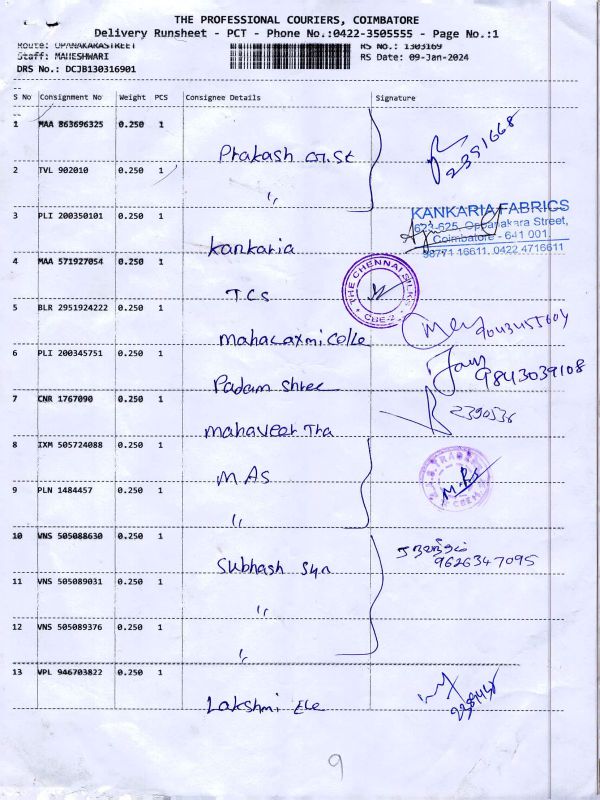 THE PROFESSIONAL COURIERS, COIMBATORE
Delivery Runsheet - PCT - Phone No.:0422-3505555 - Page No.:1
Route: OPANAKARASTREET RS No.: 1303169
Staff: MAHESHWARI RS Date: 09-Jan-2024
DRS No.: DCJB130316901
S No Consignment No Weight PCS Consignee Details Signature
1 MAA 863696325 0.250 1
Prakash G.St 2391668
2 TVL 902010 0.250 1
"
3 PLI 200350101 0.250 1
KANKARIA FABRICS
623-625, Oppanakara Street,
Coimbatore - 641 001.
98771 16611, 0422 4716611
Kankaria
4 MAA 571927054 0.250 1
THE CHENNAI SILKS
CBE-2
TCS
5 BLR 2951924222 0.250 1
Mahalaxmi Colle
6 PLI 200345751 0.250 1
Padam Shree 9843039108
7 CNR 1767090 0.250 1
2390536
Mahaveer Tha
8 IXM 505724088 0.250 1
MAS
9 PLN 1484457 0.250 1
"
10 VNS 505088630 0.250 1
Subhash Syn 9626347095
11 VNS 505089031 0.250 1
"
12 VNS 505089376 0.250 1
"
13 VPL 946703822 0.250 1
Lakshmi Ele
9